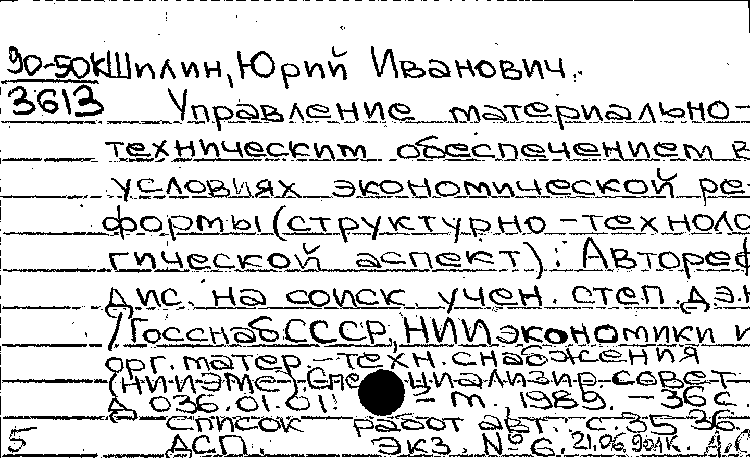 90-50К Шилин, Юрий Иванович.
3613 Управление материально-
техническим обеспечением в
условиях экономической ре-
формы (структурно-техноло
гический аспект): Автореф
дис. на соиск. учен. степ. д.э.н
/Госснаб СССР, НИИ экономики и
орг. матер.-техн. снабжения
(НИИЭМС). Специализир. совет
Д 036.01.01. - М. 1989. - 36 с.
Список работ авт.: с. 35-36.
5 ДСП. Экз. № 6. 21.06.90